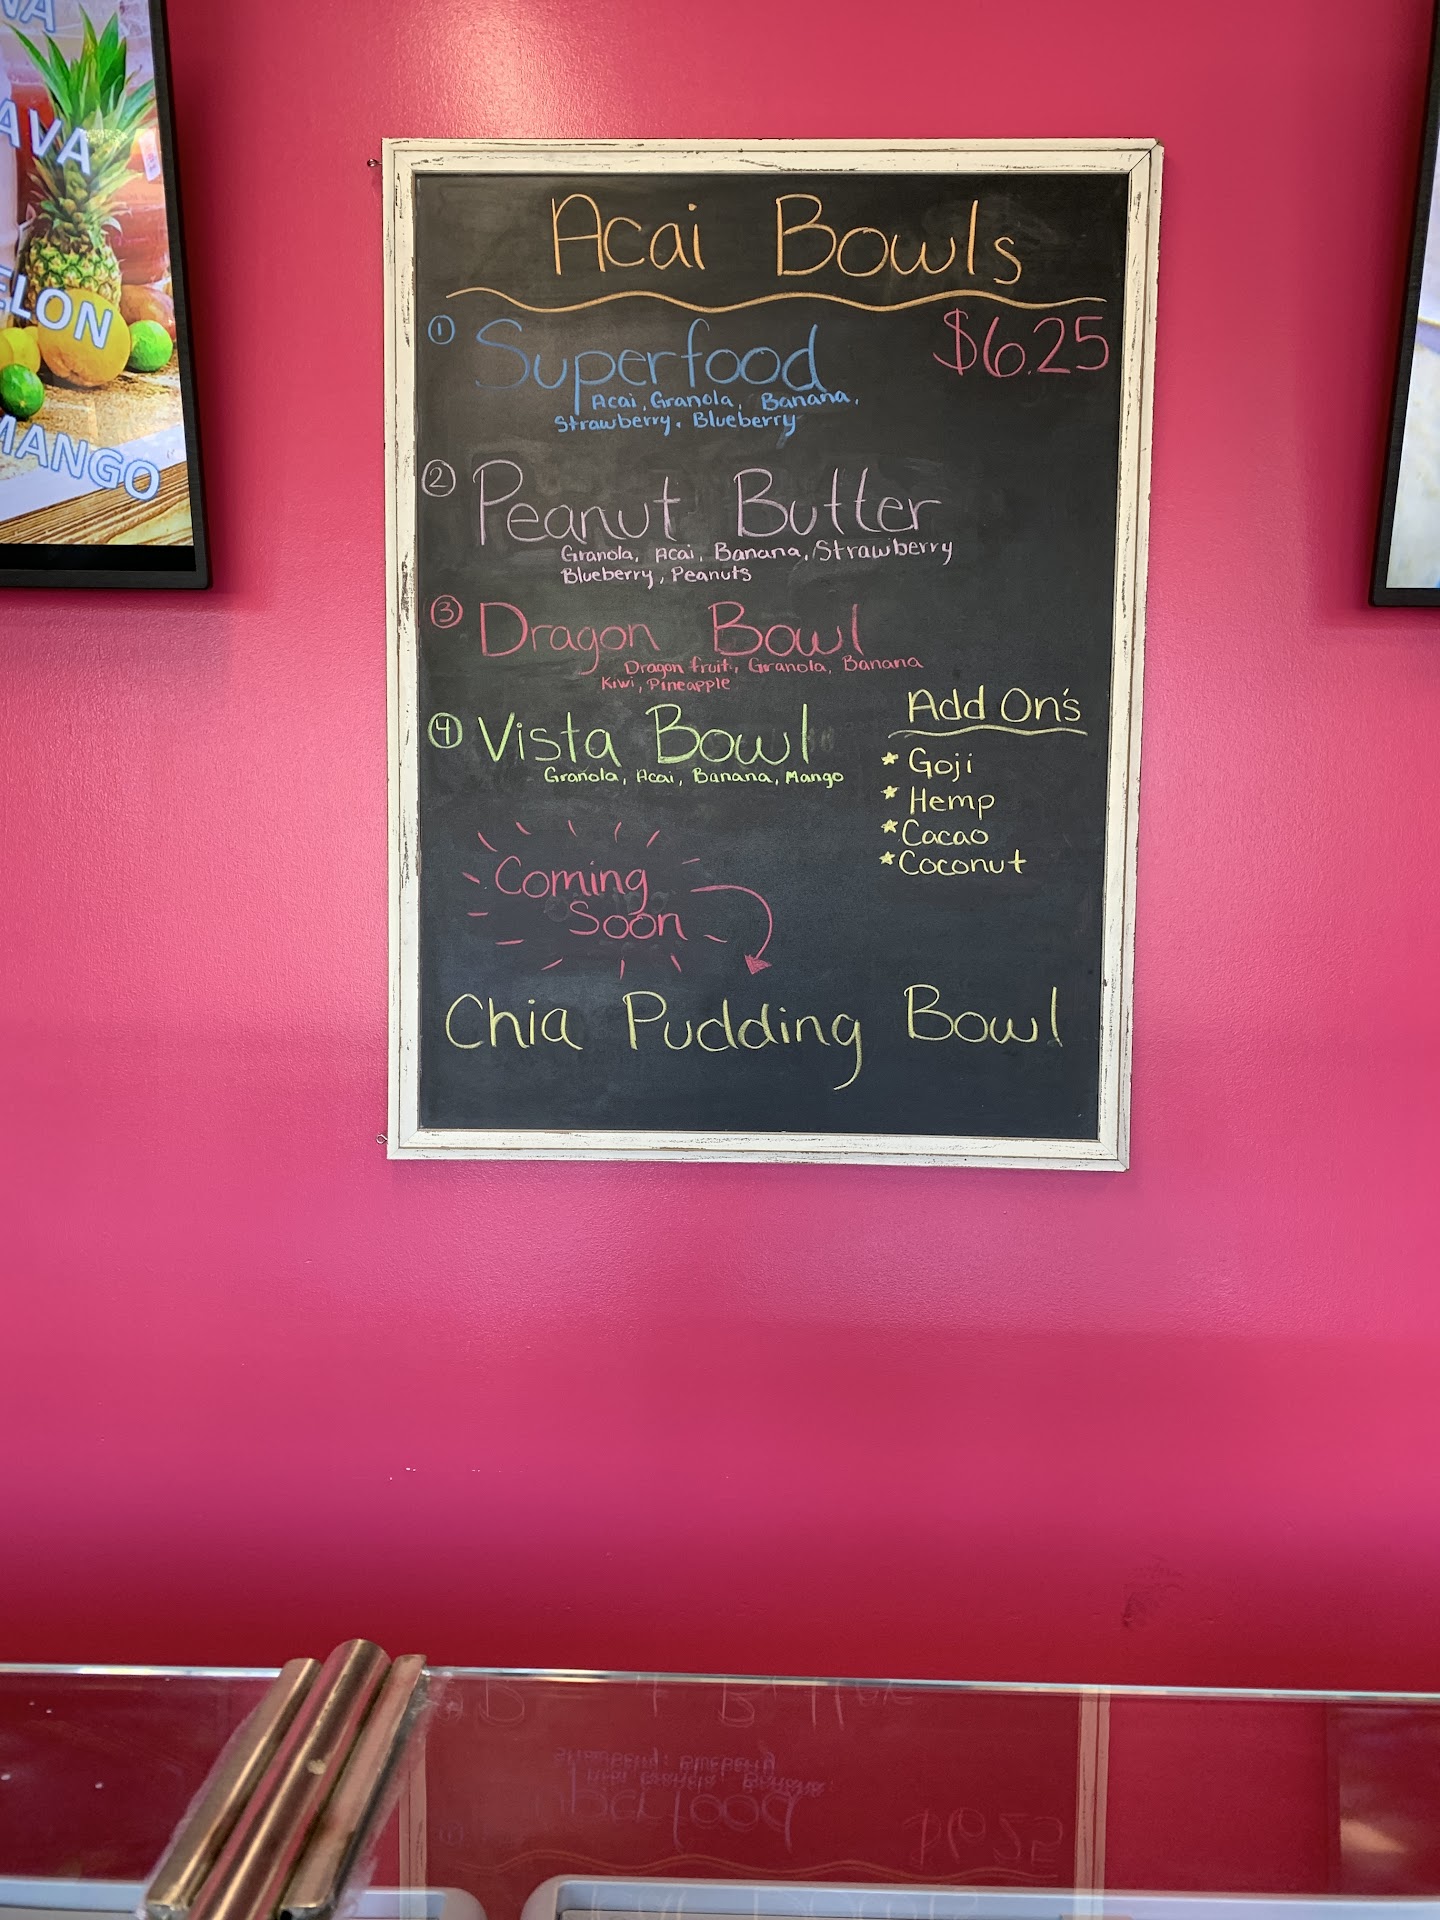 AVA
ELON
MANGO
Acai Bowls
① Superfood $6.25
Acai, Granola, Banana,
Strawberry, Blueberry
② Peanut Butter
Granola, Acai, Banana, Strawberry
Blueberry, Peanuts
③ Dragon Bowl
Dragon fruit, Granola, Banana
Kiwi, Pineapple
④ Vista Bowl
Granola, Acai, Banana, Mango
Add On's
* Goji
* Hemp
* Cacao
* Coconut
Coming
Soon
Chia Pudding Bowl